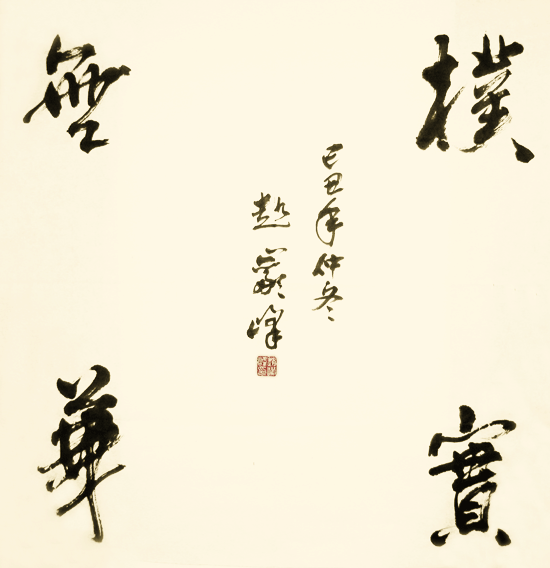 樸實
無華
己丑年仲冬
趙嚴峰